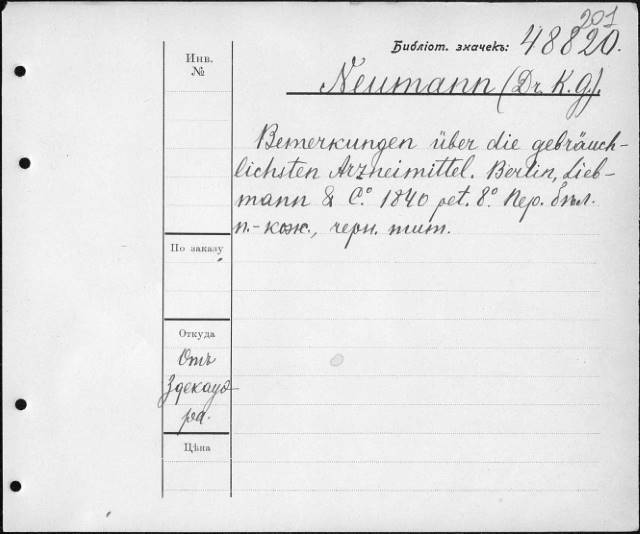 201
Библіот. значекъ: 48820.
Инв.
№
Neumann (Dr. K. G.).
Bemerkungen über die gebräuch-
lichsten Arzneimittel. Berlin, Lieb-
mann & C.º 1840 pet. 8.º Пер. бѣл.
п.-кож., черн. тит.
По заказу
Откуда
Отъ
Здекауэ-
ра.
Цѣна